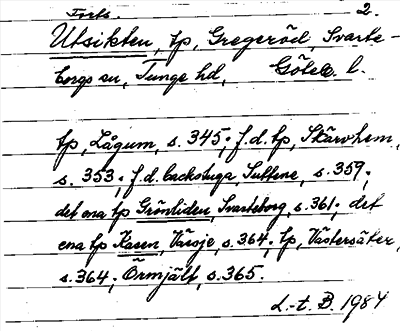 Forts. 2.
Utsikten, tp, Gregeröd, Svarte-
borgs sn, Tunge hd, Göteb. l.
tp, Lågum, s. 345; f.d. tp, Skärvhem,
s. 353; f.d. backstuga, Suttene, s. 359;
det ena tp Grönliden, Svarteborg, s. 361; det
ena tp Kasen, Väsje, s. 364; tp, Västersäter,
s. 364; Örmjält, s. 365.
L.-t. B. 1984